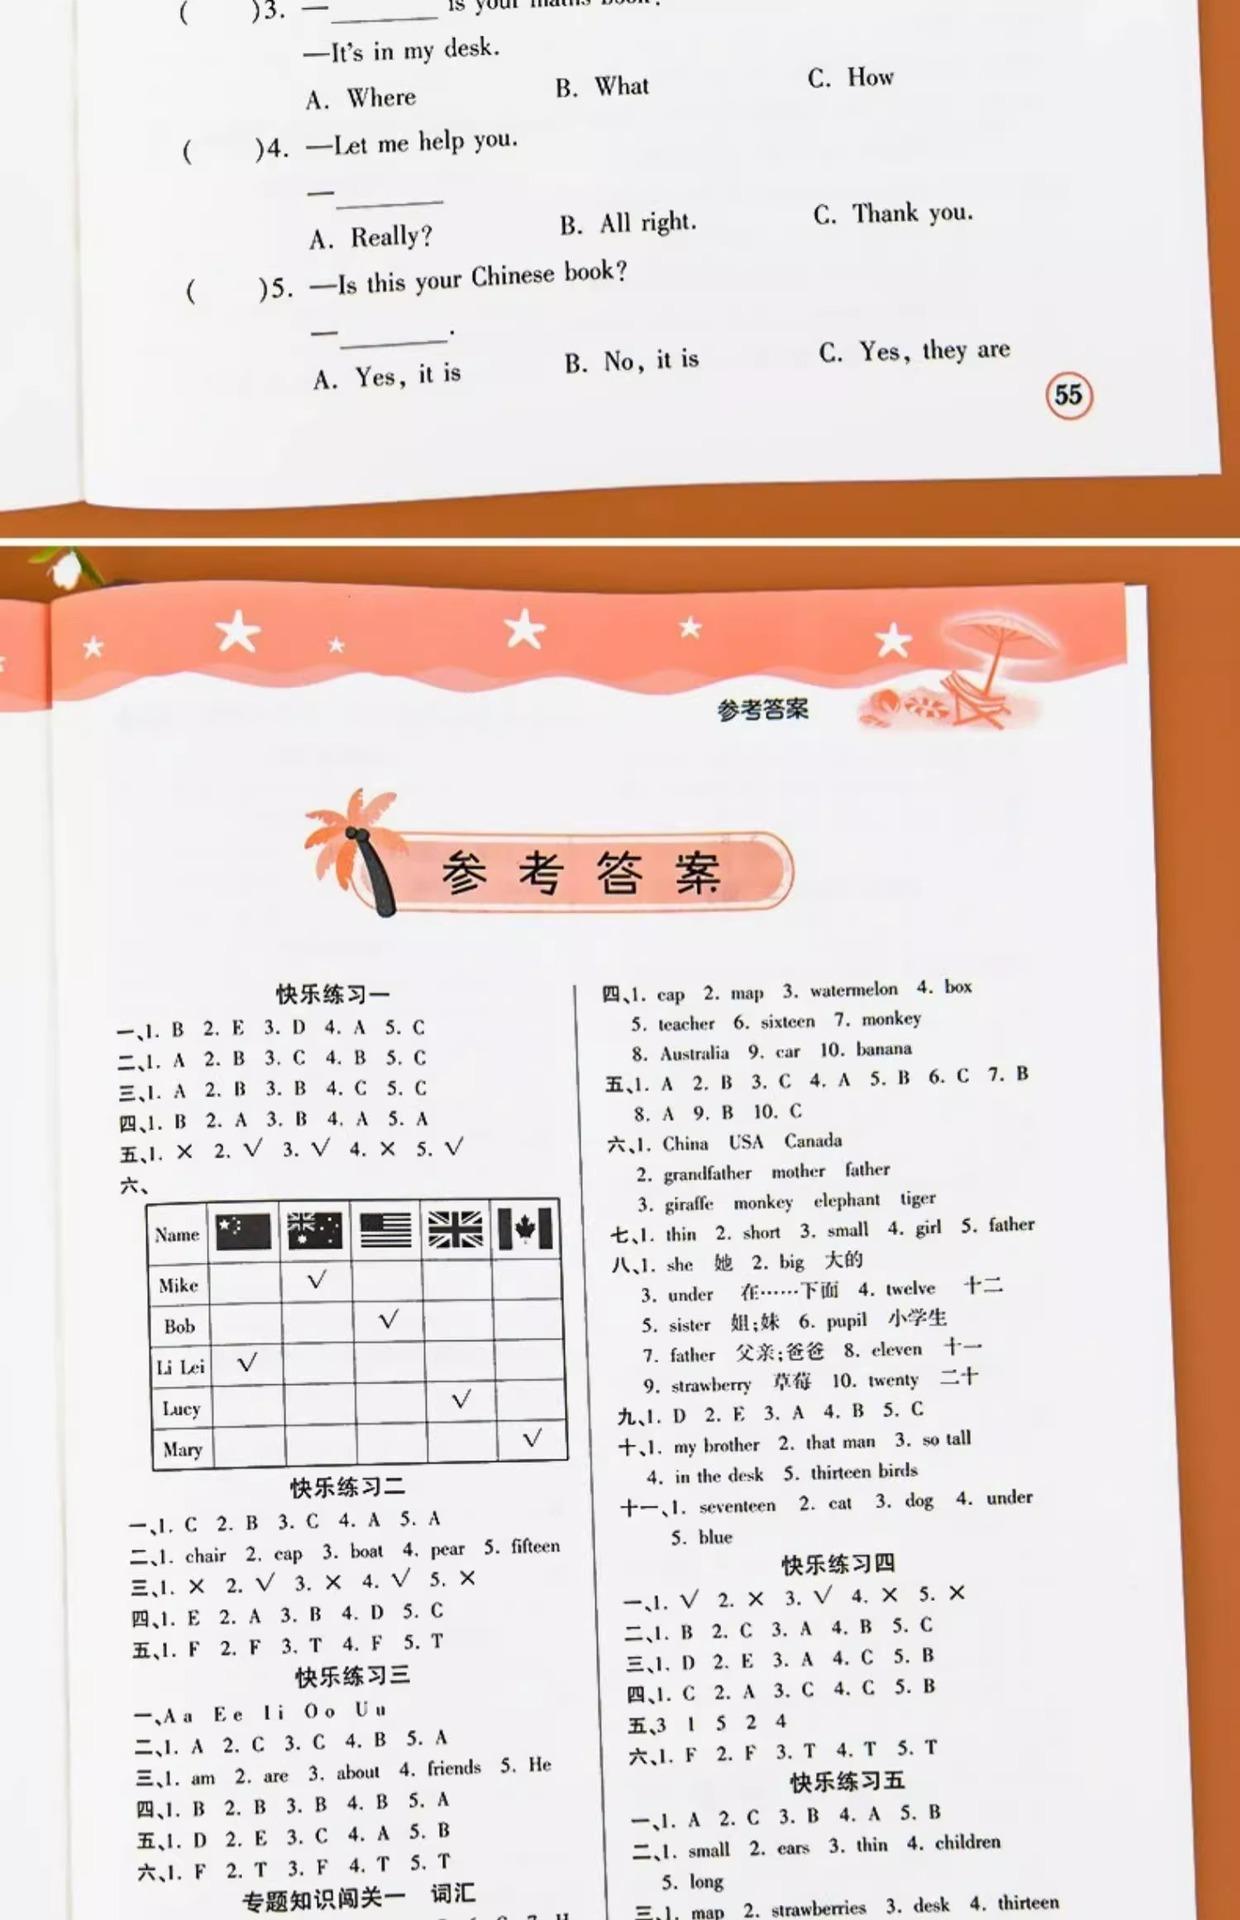 ( )3. —________ is your maths book?
—It's in my desk.
A. Where B. What C. How
( )4. —Let me help you.
—________
A. Really? B. All right. C. Thank you.
( )5. —Is this your Chinese book?
—________.
A. Yes, it is B. No, it is C. Yes, they are
55
参考答案
参考答案
快乐练习一
一、1. B 2. E 3. D 4. A 5. C
二、1. A 2. B 3. C 4. B 5. C
三、1. A 2. B 3. B 4. C 5. C
四、1. B 2. A 3. B 4. A 5. A
五、1. × 2. √ 3. √ 4. × 5. √
六、
Name
Mike √
Bob √
Li Lei √
Lucy √
Mary √
快乐练习二
一、1. C 2. B 3. C 4. A 5. A
二、1. chair 2. cap 3. boat 4. pear 5. fifteen
三、1. × 2. √ 3. × 4. √ 5. ×
四、1. E 2. A 3. B 4. D 5. C
五、1. F 2. F 3. T 4. F 5. T
快乐练习三
一、A a E e I i O o U u
二、1. A 2. C 3. C 4. B 5. A
三、1. am 2. are 3. about 4. friends 5. He
四、1. B 2. B 3. B 4. B 5. A
五、1. D 2. E 3. C 4. A 5. B
六、1. F 2. T 3. F 4. T 5. T
专题知识闯关一 词汇
四、1. cap 2. map 3. watermelon 4. box
5. teacher 6. sixteen 7. monkey
8. Australia 9. car 10. banana
五、1. A 2. B 3. C 4. A 5. B 6. C 7. B
8. A 9. B 10. C
六、1. China USA Canada
2. grandfather mother father
3. giraffe monkey elephant tiger
七、1. thin 2. short 3. small 4. girl 5. father
八、1. she 她 2. big 大的
3. under 在……下面 4. twelve 十二
5. sister 姐;妹 6. pupil 小学生
7. father 父亲;爸爸 8. eleven 十一
9. strawberry 草莓 10. twenty 二十
九、1. D 2. E 3. A 4. B 5. C
十、1. my brother 2. that man 3. so tall
4. in the desk 5. thirteen birds
十一、1. seventeen 2. cat 3. dog 4. under
5. blue
快乐练习四
一、1. √ 2. × 3. √ 4. × 5. ×
二、1. B 2. C 3. A 4. B 5. C
三、1. D 2. E 3. A 4. C 5. B
四、1. C 2. A 3. C 4. C 5. B
五、3 1 5 2 4
六、1. F 2. F 3. T 4. T 5. T
快乐练习五
一、1. A 2. C 3. B 4. A 5. B
二、1. small 2. ears 3. thin 4. children
5. long
三、1. map 2. strawberries 3. desk 4. thirteen